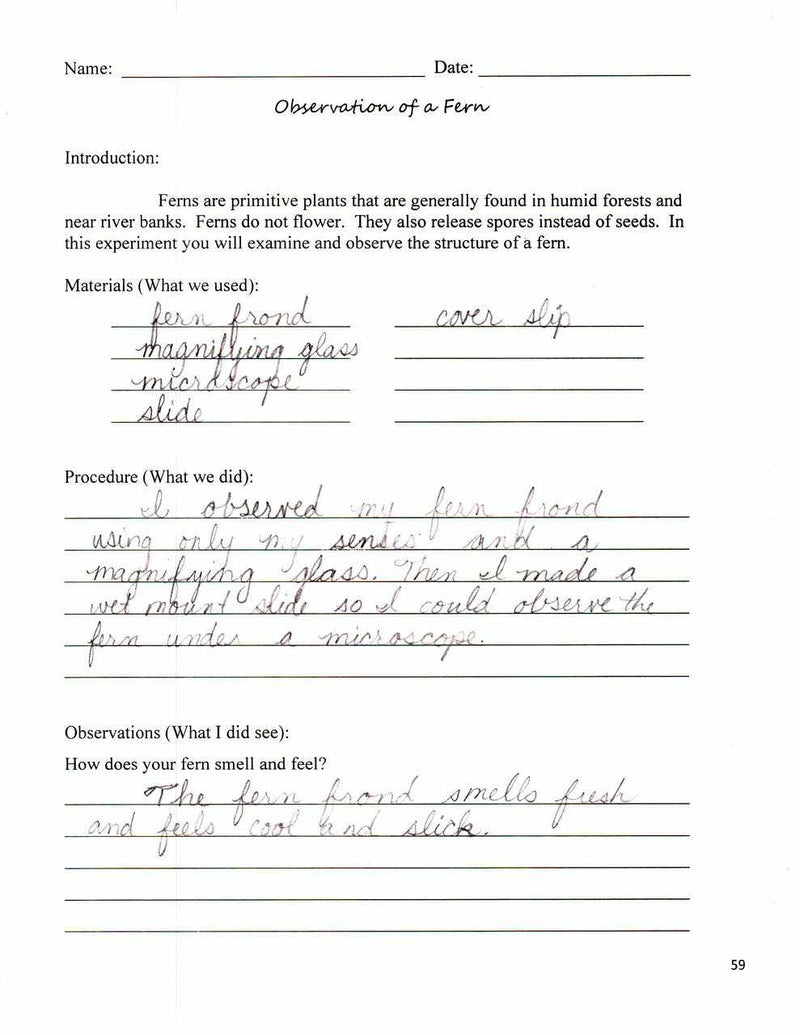 Name: Date:
Observation of a Fern
Introduction:
Ferns are primitive plants that are generally found in humid forests and
near river banks. Ferns do not flower. They also release spores instead of seeds. In
this experiment you will examine and observe the structure of a fern.
Materials (What we used):
fern frond cover slip
magnifying glass
microscope
slide
Procedure (What we did):
I observed my fern frond
using only my senses and a
magnifying glass. Then I made a
wet mount slide so I could observe the
fern under a microscope.
Observations (What I did see):
How does your fern smell and feel?
The fern frond smells fresh
and feels cool and slick.
59